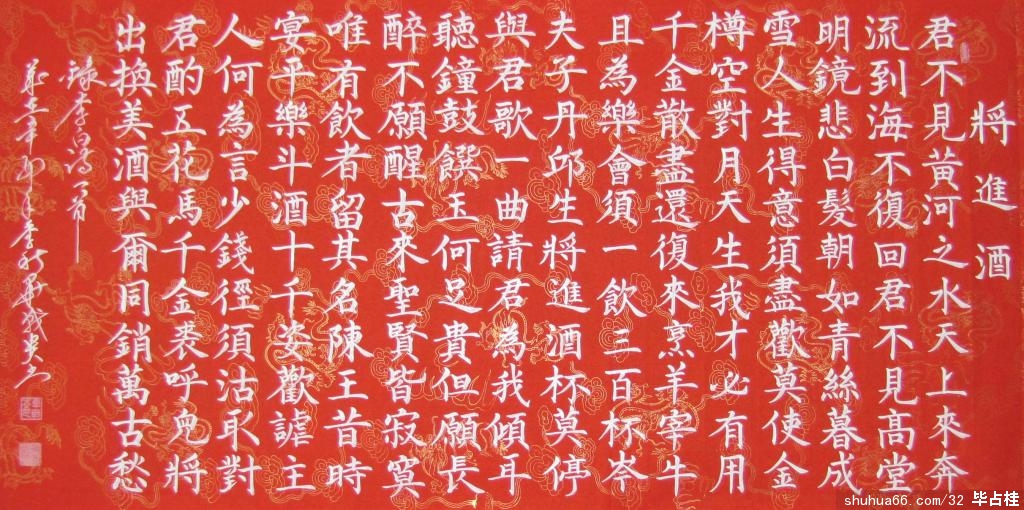 將進酒
君不見黃河之水天上來奔
流到海不復回君不見高堂
明鏡悲白髮朝如青絲暮成
雪人生得意須盡歡莫使金
樽空對月天生我才必有用
千金散盡還復來烹羊宰牛
且為樂會須一飲三百杯岑
夫子丹邱生將進酒杯莫停
與君歌一曲請君為我傾耳
聽鐘鼓饌玉何足貴但願長
醉不願醒古來聖賢皆寂寞
唯有飲者留其名陳王昔時
宴平樂斗酒十千姿歡謔主
人何為言少錢徑須沽取對
君酌五花馬千金裘呼兒將
出換美酒與爾同銷萬古愁
錄李白詩首
shuhua66.com/32 毕占桂